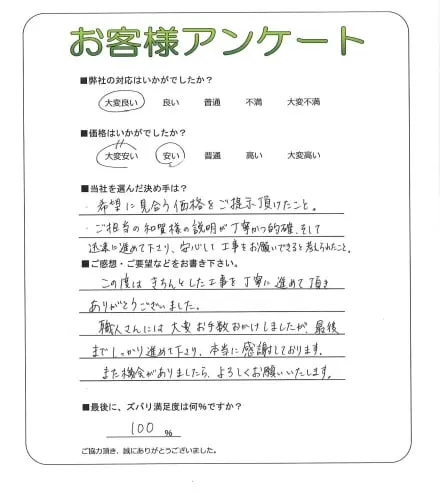 お客様アンケート
■弊社の対応はいかがでしたか？
大変良い 良い 普通 不満 大変不満
■価格はいかがでしたか？
大変安い 安い 普通 高い 大変高い
■当社を選んだ決め手は？
・希望に見合う価格をご提示頂けたこと。
・ご担当の和賀様の説明が丁寧かつ的確、そして
迅速に進めて下さり、安心して工事をお願いできると考えられたこと。
■ご感想・ご要望などをお書き下さい。
この度はきちんとした工事を丁寧に進めて頂き
ありがとうございました。
職人さんには大変お手数おかけしましたが、最後
までしっかり進めて下さり、本当に感謝しております。
また機会がありましたら、よろしくお願いいたします。
■最後に、ズバリ満足度は何％ですか？
100 %
ご協力頂き、誠にありがとうございました。